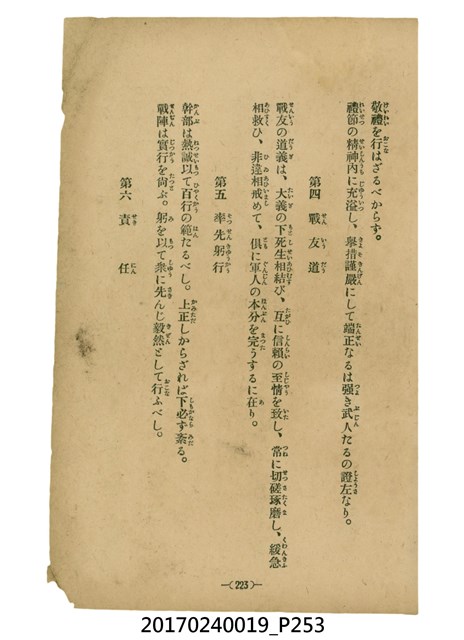 敬禮を行はざるべからず。
禮節の精神內に充溢し、擧措謹嚴にして端正なるは强き武人たるの證左なり。
第四 戰友道
戰友の道義は、大義の下死生相結び、互に信賴の至情を致し、常に切磋琢磨し、緩急
相救ひ、非違相戒めて、俱に軍人の本分を完うするに在り。
第五 率先躬行
幹部は熱誠以て百行の範たるべし。上正しからざれば下必ず紊る。
戰陣は實行を尙ぶ。躬を以て衆に先んじ毅然として行ふべし。
第六 責任
—(223)—
20170240019_P253